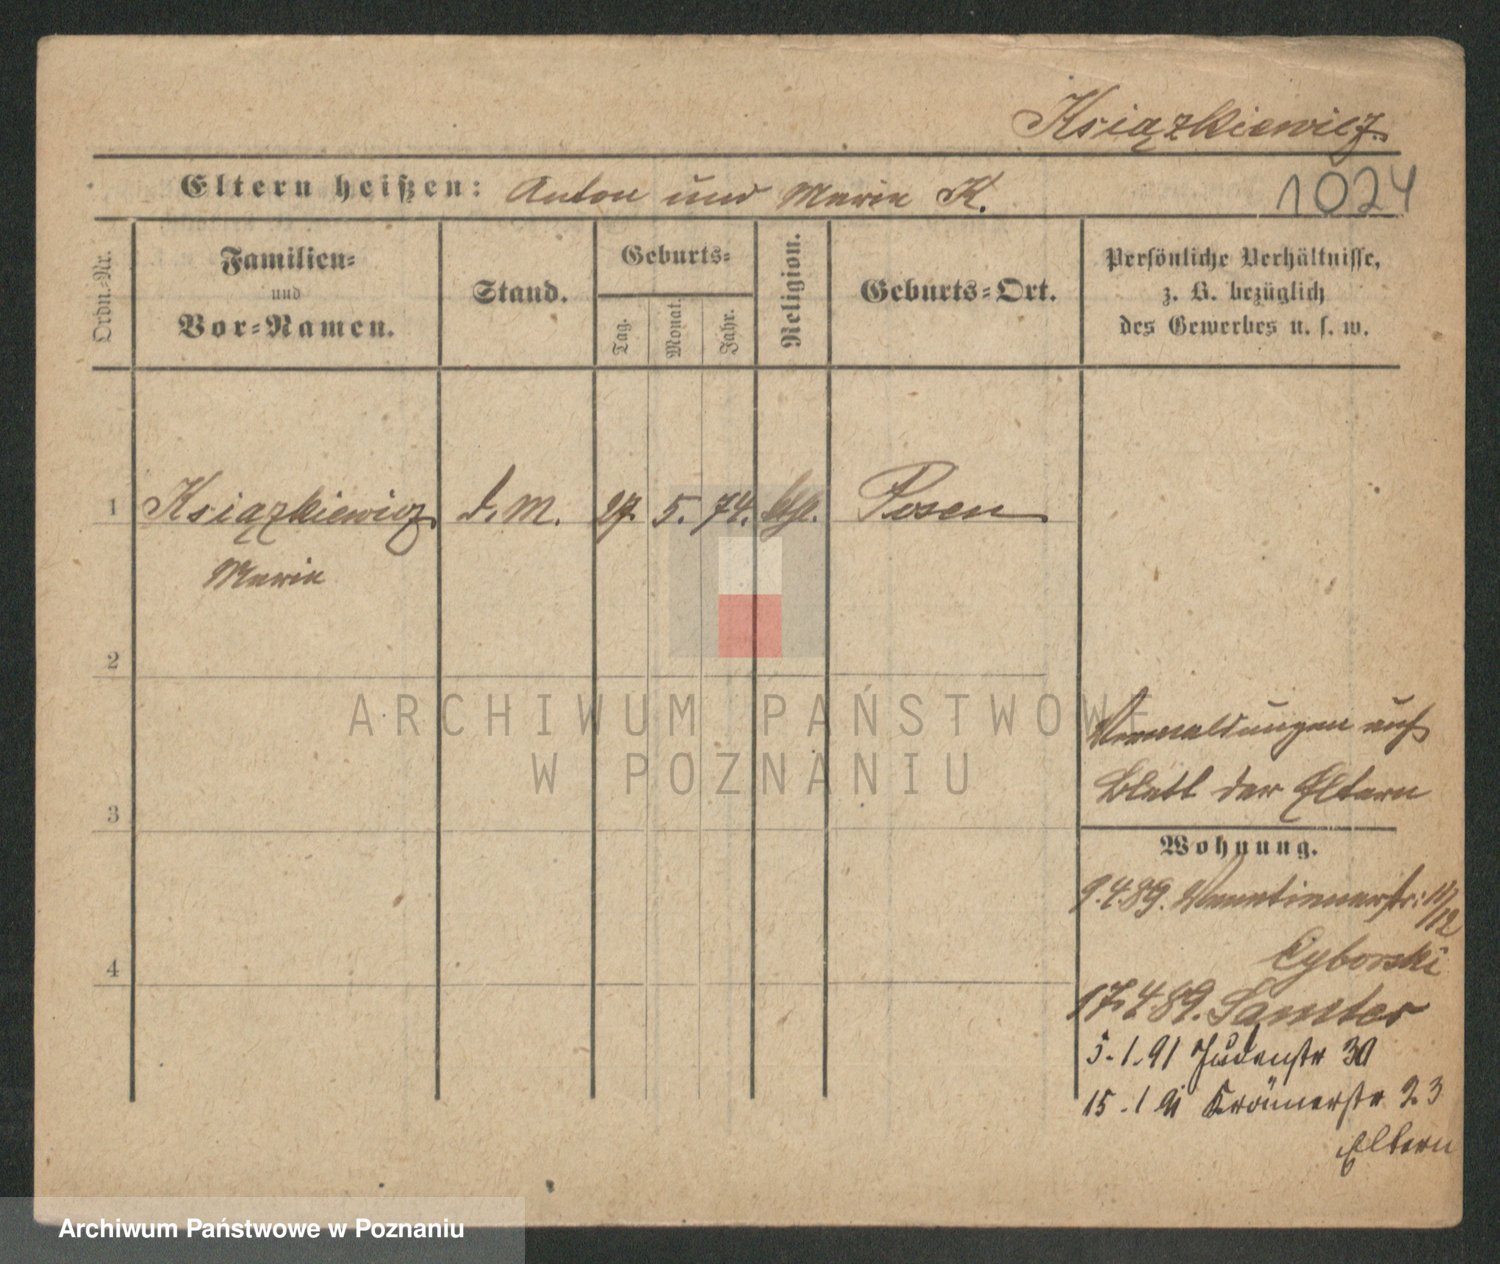 Książkiewicz.
Eltern heißen: Anton und Maria K.
1024
Ordn.-Nr.
Familien-
und
Vor-Namen.
Stand.
Geburts-
Tag.
Monat.
Jahr.
Religion.
Geburts-Ort.
Persönliche Verhältnisse,
z. B. bezüglich
des Gewerbes u. s. w.
1 Książkiewicz d. M. 27. 5. 74. kth. Posen
Maria
2
3
4
auf
Blatt der Eltern
Wohnung.
9.4.89. Venetianerstr. 11/12
Cyborski
17.4.89. Samter
5.1.91 Judenstr 30
15.1.91 Krämerstr 23
Eltern
ARCHIWUM PAŃSTWOWE
W POZNANIU
Archiwum Państwowe w Poznaniu